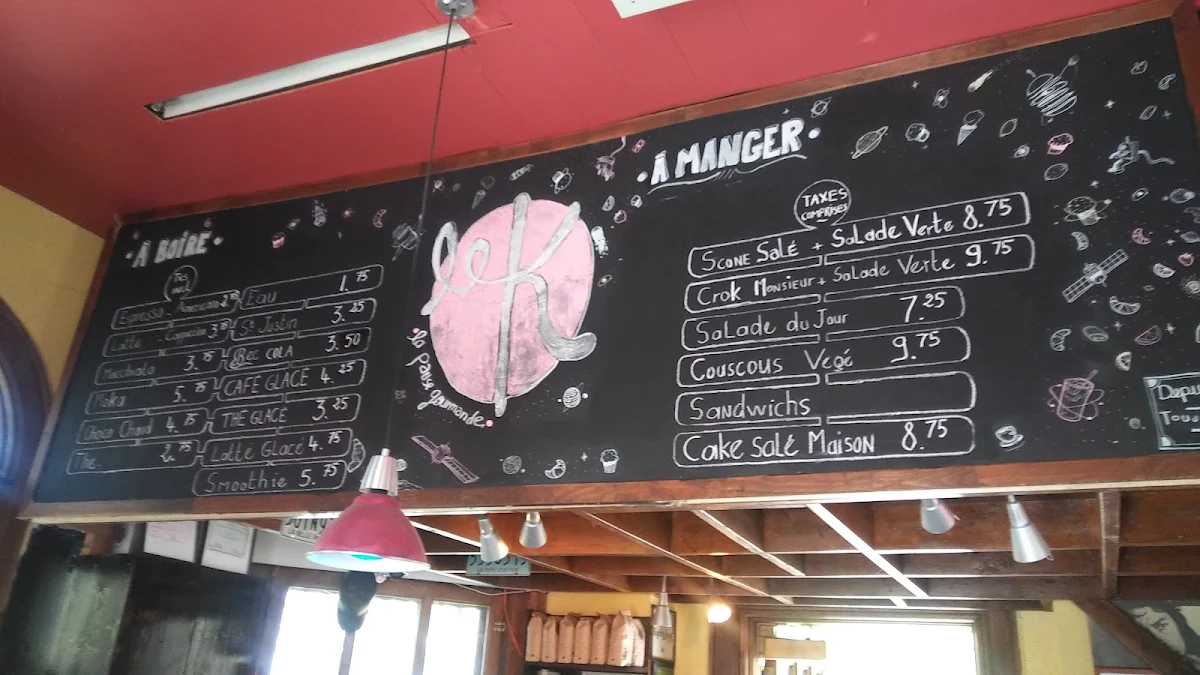 À BOIRE
Espresso - Americano
Latte - Cappuccino 3.75
Macchiato 3.75
Moka 5.75
Choco Chaud 4.75
Thé 2.75
Eau 1.75
St Justin 3.25
Bec COLA 3.50
CAFÉ GLACÉ 4.25
THÉ GLACÉ 3.25
Latté Glacé 4.75
Smoothie 5.75
le K
la pause gourmande
À MANGER
TAXES
COMPRISES
SCONE SALÉ + SALADE VERTE 8.75
Crok Monsieur + Salade Verte 9.75
Salade du Jour 7.25
Couscous Végé 9.75
SANDWICHS
Cake Salé Maison 8.75
Depu